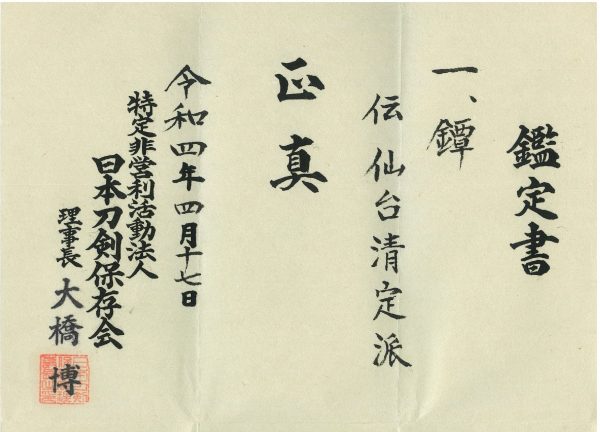 鑑定書
一、鐔
伝 仙台清定派
正真
令和四年四月十七日
特定非営利活動法人
日本刀剣保存会
理事長 大橋 博